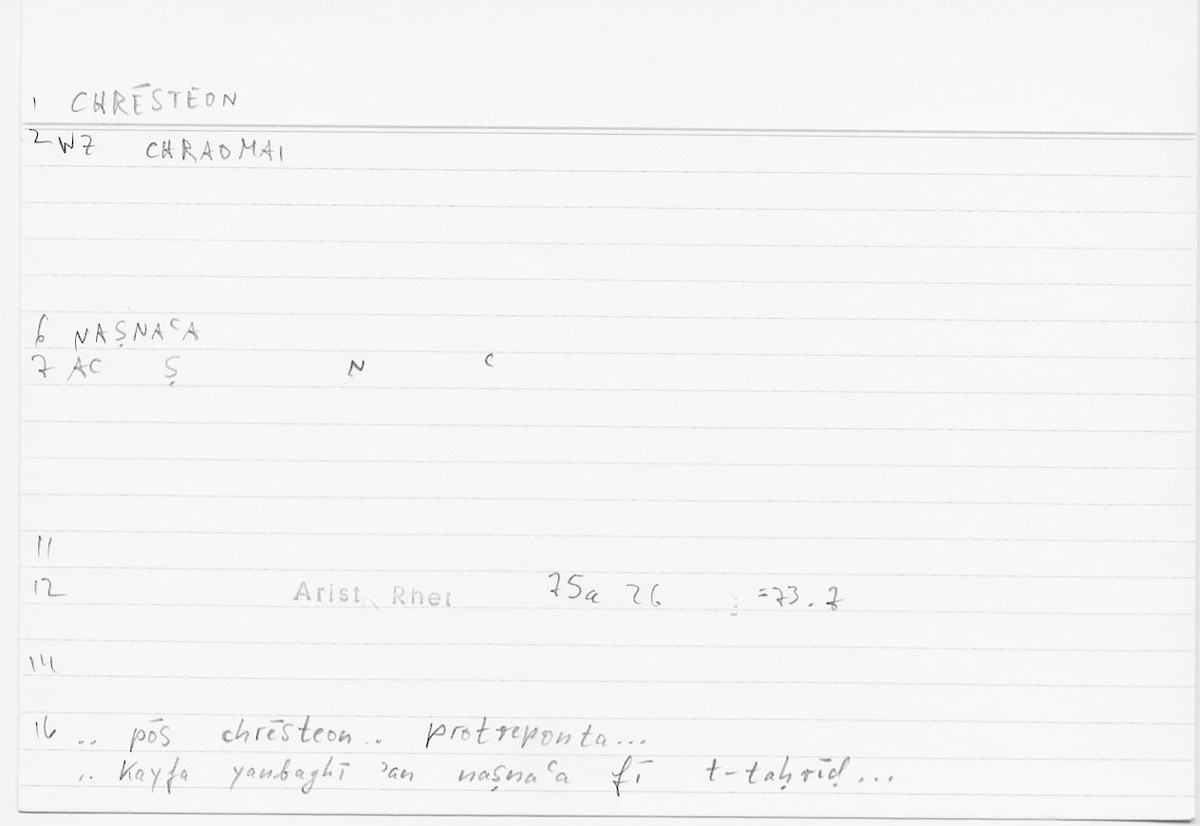 1 CHRĒSTEON
2 WZ CHRAOMAI
6 NAṢNAᶜA
7 AC Ṣ N ᶜ
11
12 Arist. Rhet 75a 26 : =73.7
14
16 .. pōs chrēsteon .. protreponta...
.. kayfa yanbaghī ʾan naṣnaᶜa fī t-taḥrīḍ...